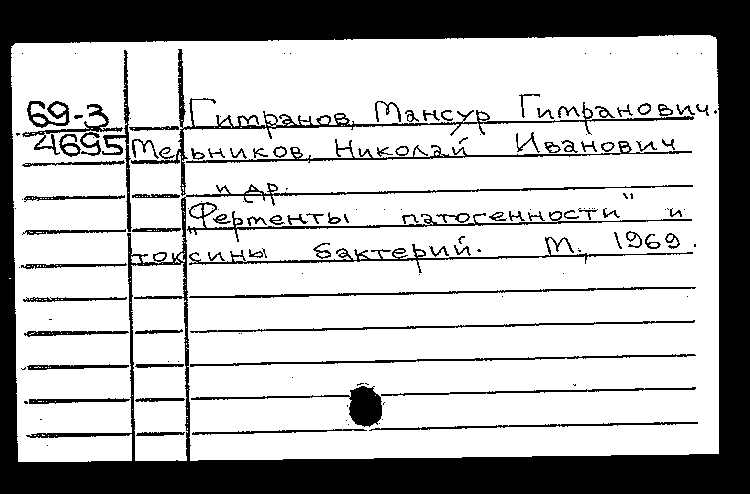 69-3 Гитранов, Мансур Гитранович.
4695 Мельников, Николай Иванович
и др.
„Ферменты патогенности" и
токсины бактерий. М., 1969.